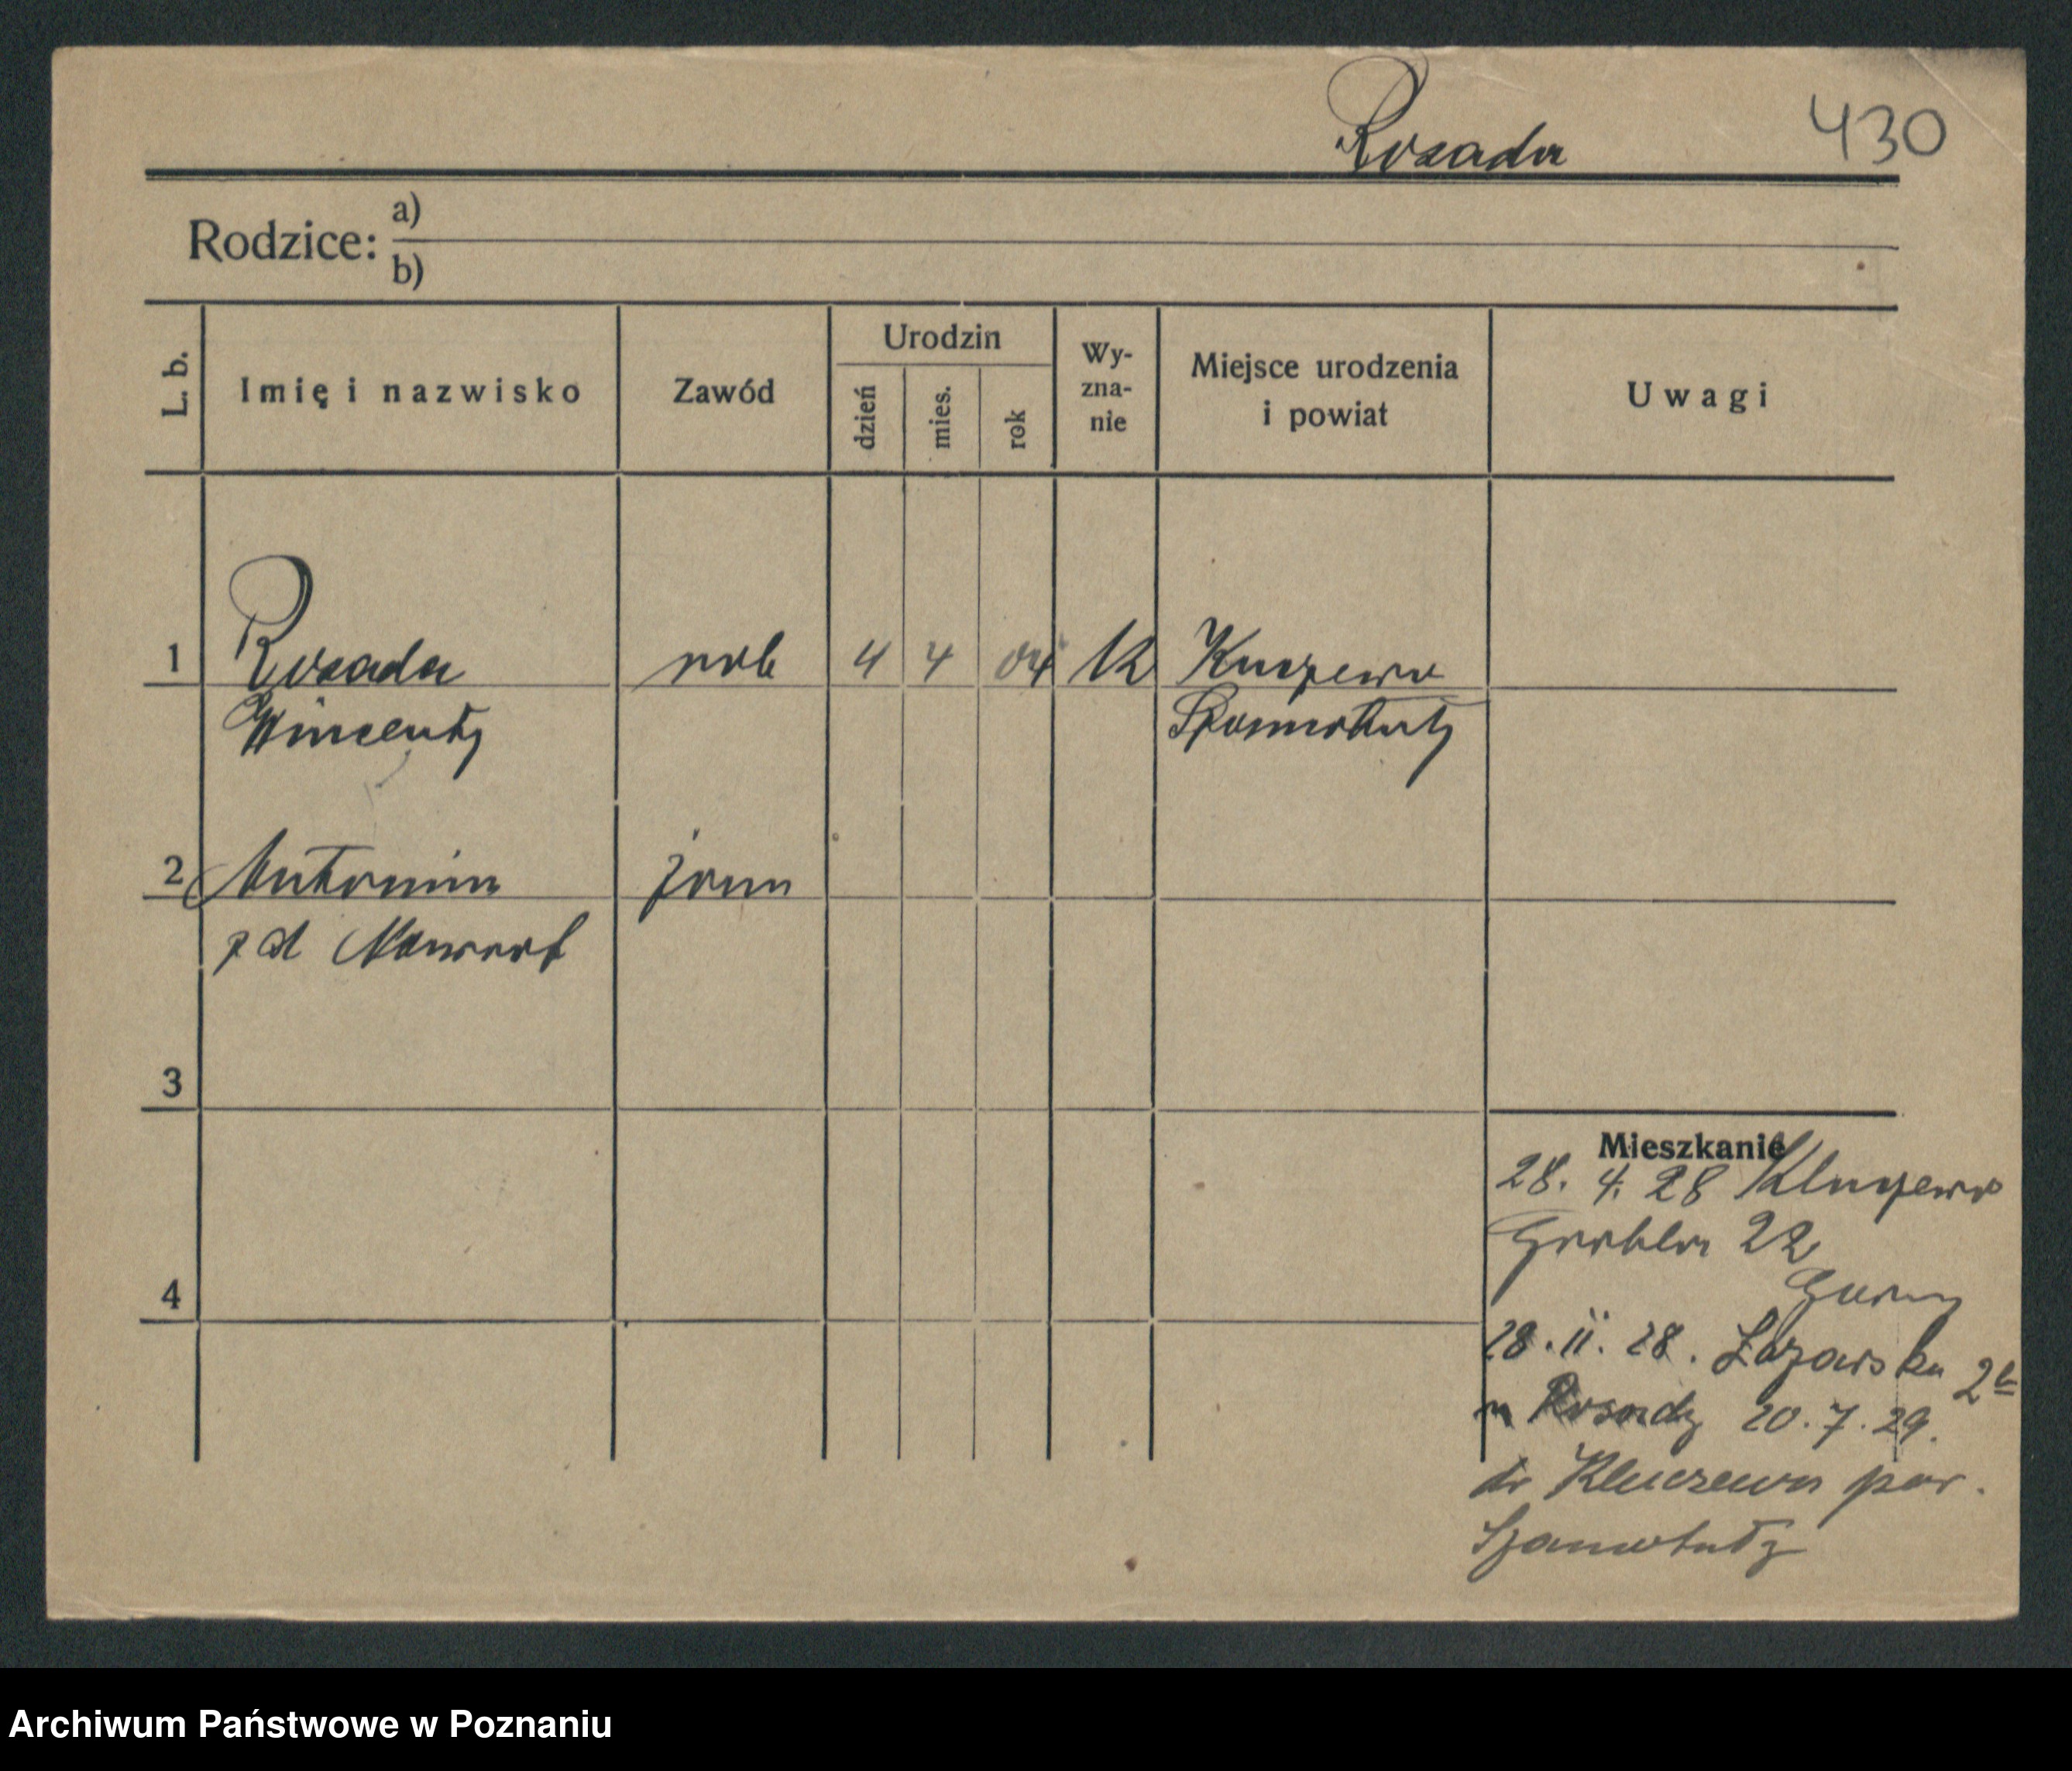 Rosada 430
Rodzice: a)
b)
L. b. Imię i nazwisko Zawód Urodzin dzień mies. rok Wy-zna-nie Miejsce urodzenia i powiat Uwagi
1 Rosada rob 4 4 04 K
Wincenty Szamotuły
2 Antonina żona
z d
3
4
Mieszkanie
28. 4. 28
Grobla 22
28. 11. 28. Łazarska 2
u Rosady 20. 7. 29.
do Kluczewa pow.
Szamotuły
Archiwum Państwowe w Poznaniu